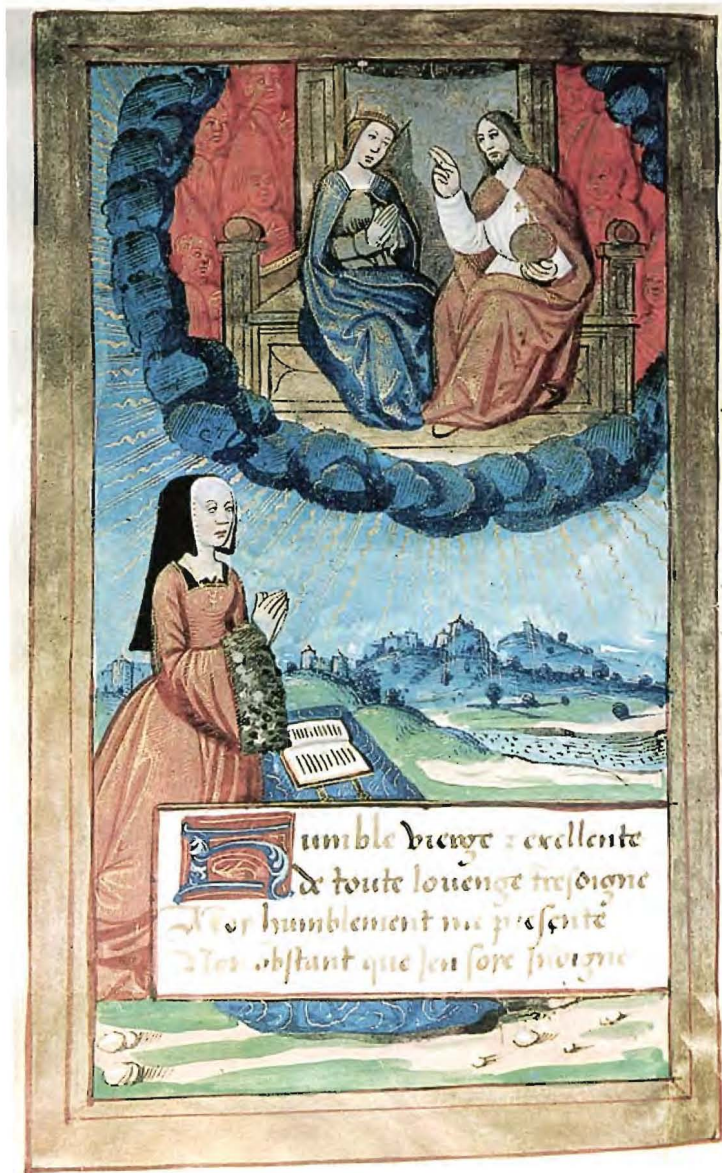 Humble vierge ⁊ exellente
de toute louenge tresdigne
humblement me presente
Non obstant que Jen soye Indigne